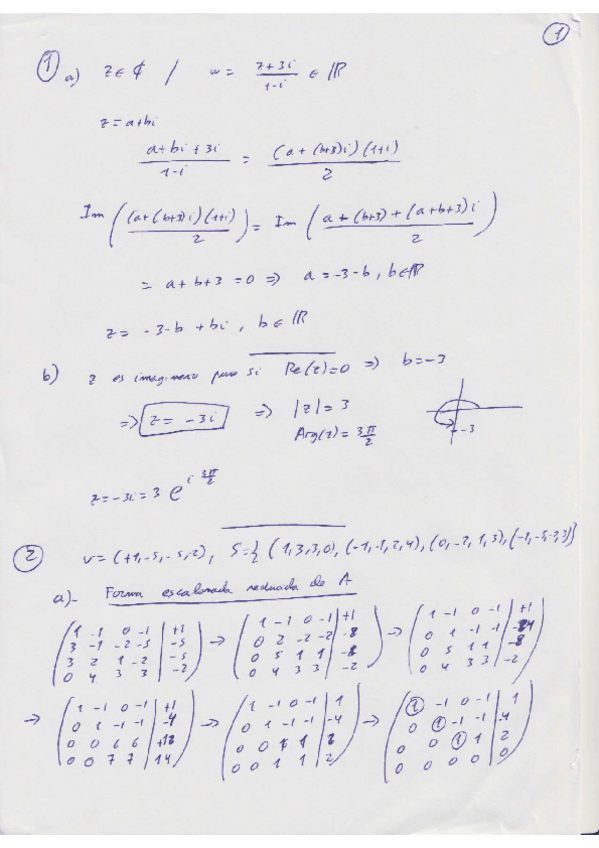 1
① a) z ∈ ₵ / w = (z+3i)/(1-i) ∈ ℝ
z = a+bi
(a+bi+3i)/(1-i) = ((a+(b+3)i)(1+i))/2
Im( ((a+(b+3)i)(1+i))/2 ) = Im( (a-(b+3)+(a+b+3)i)/2 )
= a+b+3 = 0 ⇒ a = -3-b, b∈ℝ
z = -3-b+bi, b∈ℝ
b) z es imaginario puro si Re(z)=0 ⇒ b=-3
⇒ z = -3i ⇒ |z| = 3
Arg(z) = 3π/2
-3
z = -3i = 3 e^(i 3π/2)
② v = (+1,-5,-5,2), S = { (1,3,3,0), (-1,-1,2,4), (0,-2,1,3), (-1,-5,-2,3)}
a)- Forma escalonada reducida de A
( 1 -1 0 -1 | +1 ) → ( 1 -1 0 -1 | +1 ) → ( 1 -1 0 -1 | +1 )
( 3 -1 -2 -5 | -5 ) ( 0 2 -2 -2 | -8 ) ( 0 1 -1 -1 | -4 )
( 3 2 1 -2 | -5 ) ( 0 5 1 1 | -8 ) ( 0 5 1 1 | -8 )
( 0 4 3 3 | -2 ) ( 0 4 3 3 | -2 ) ( 0 4 3 3 | -2 )
→ ( 1 -1 0 -1 | +1 ) → ( 1 -1 0 -1 | 1 ) → ( ① -1 0 -1 | 1 )
( 0 1 -1 -1 | -4 ) ( 0 1 -1 -1 | -4 ) ( 0 ① -1 -1 | -4 )
( 0 0 6 6 | +12 ) ( 0 0 1 1 | 2 ) ( 0 0 ① 1 | 2 )
( 0 0 7 7 | 14 ) ( 0 0 1 1 | 2 ) ( 0 0 0 0 | 0 )